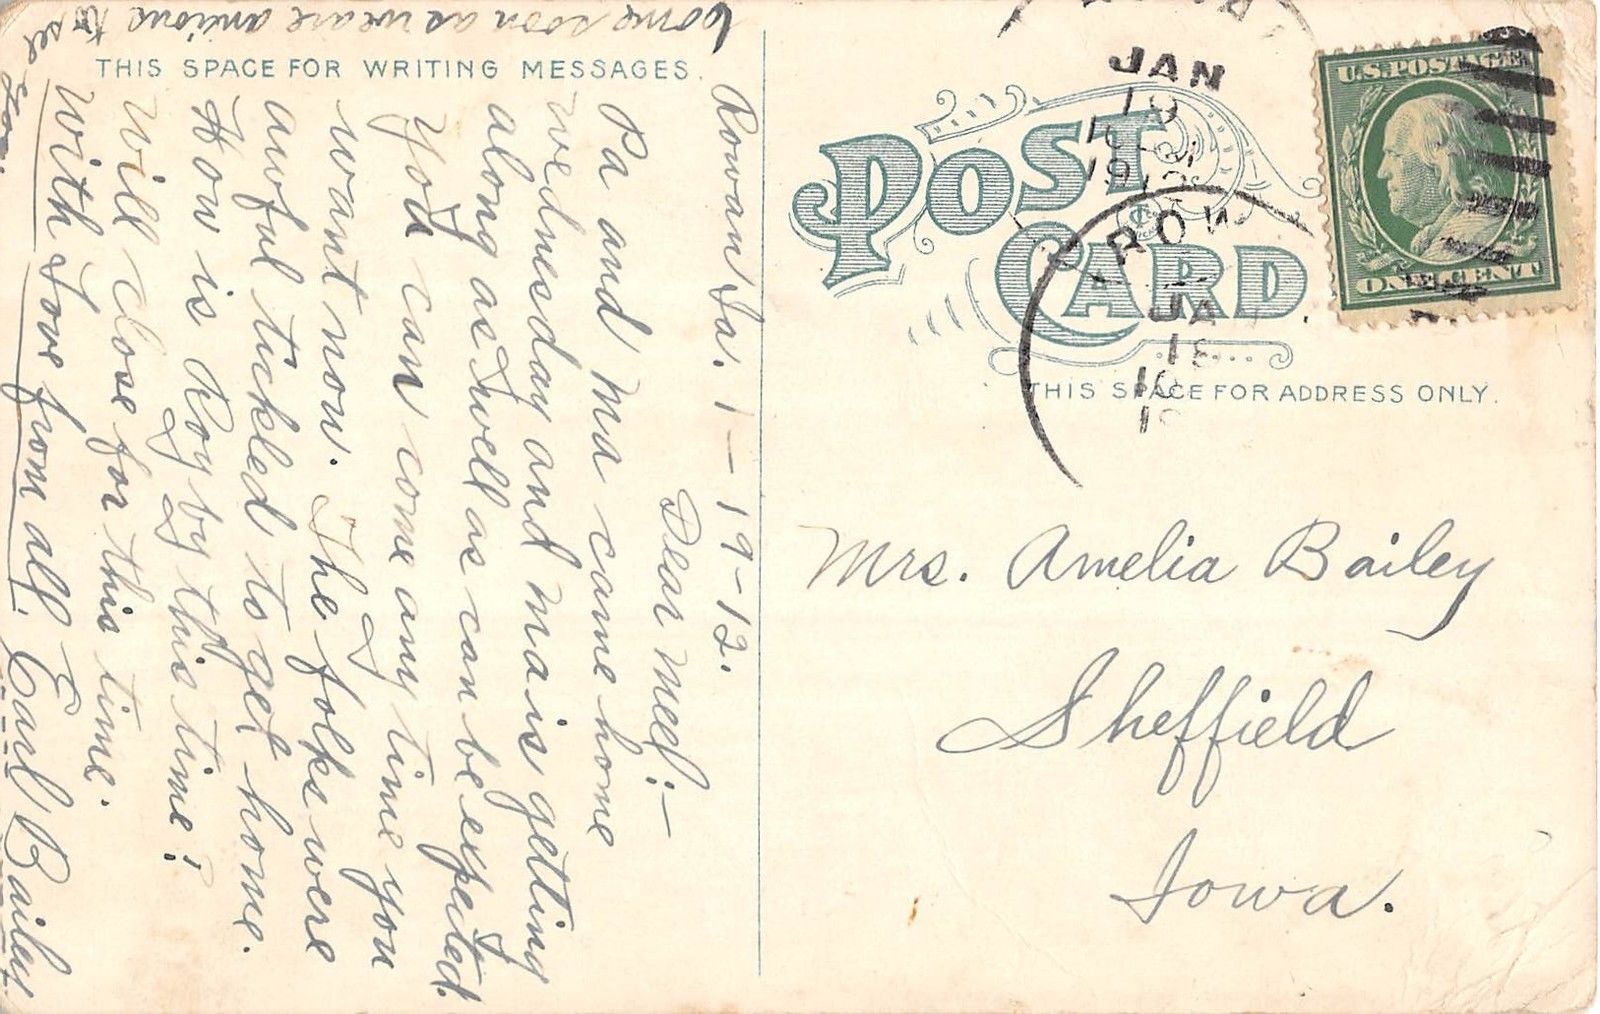 THIS SPACE FOR WRITING MESSAGES.
Rowan Ia. 1-19-12.
Dear Meel:-
Pa and Ma came home
wednesday and ma is getting
along as well as can be expected.
You can come any time you
want now. The folks were
awful tickled to get home.
How is Roy by this time?
Will close for this time.
With Love from all. Earl Bailey
Come soon as we are anxious to see
you.
POST
CARD
THIS SPACE FOR ADDRESS ONLY.
U.S. POSTAGE
ONE CENT
JAN
19
191
ROW
JA
1
Mrs. Amelia Bailey
Sheffield
Iowa.